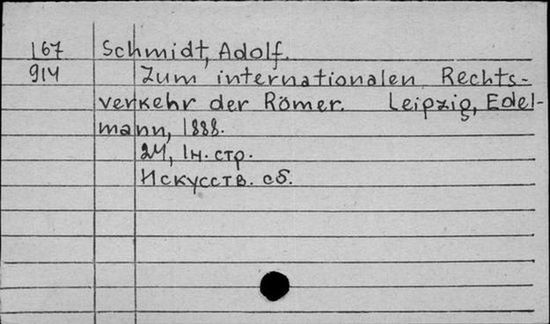 167 Schmidt, Adolf.
914 Zum internationalen Rechts-
verkehr der Römer. Leipzig, Edel-
mann, 1888.
24, 1 н. стр.
Искусств. сб.